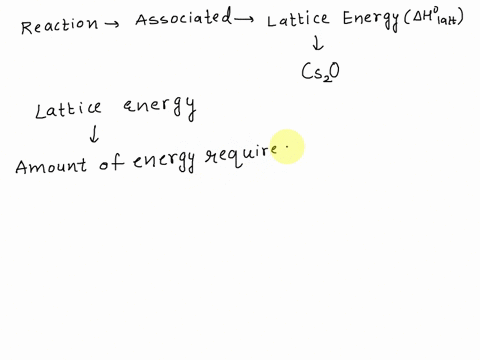 Reaction → Associated → Lattice Energy (ΔH°latt)
↓
Cs₂O
Lattice energy
↓
Amount of energy require